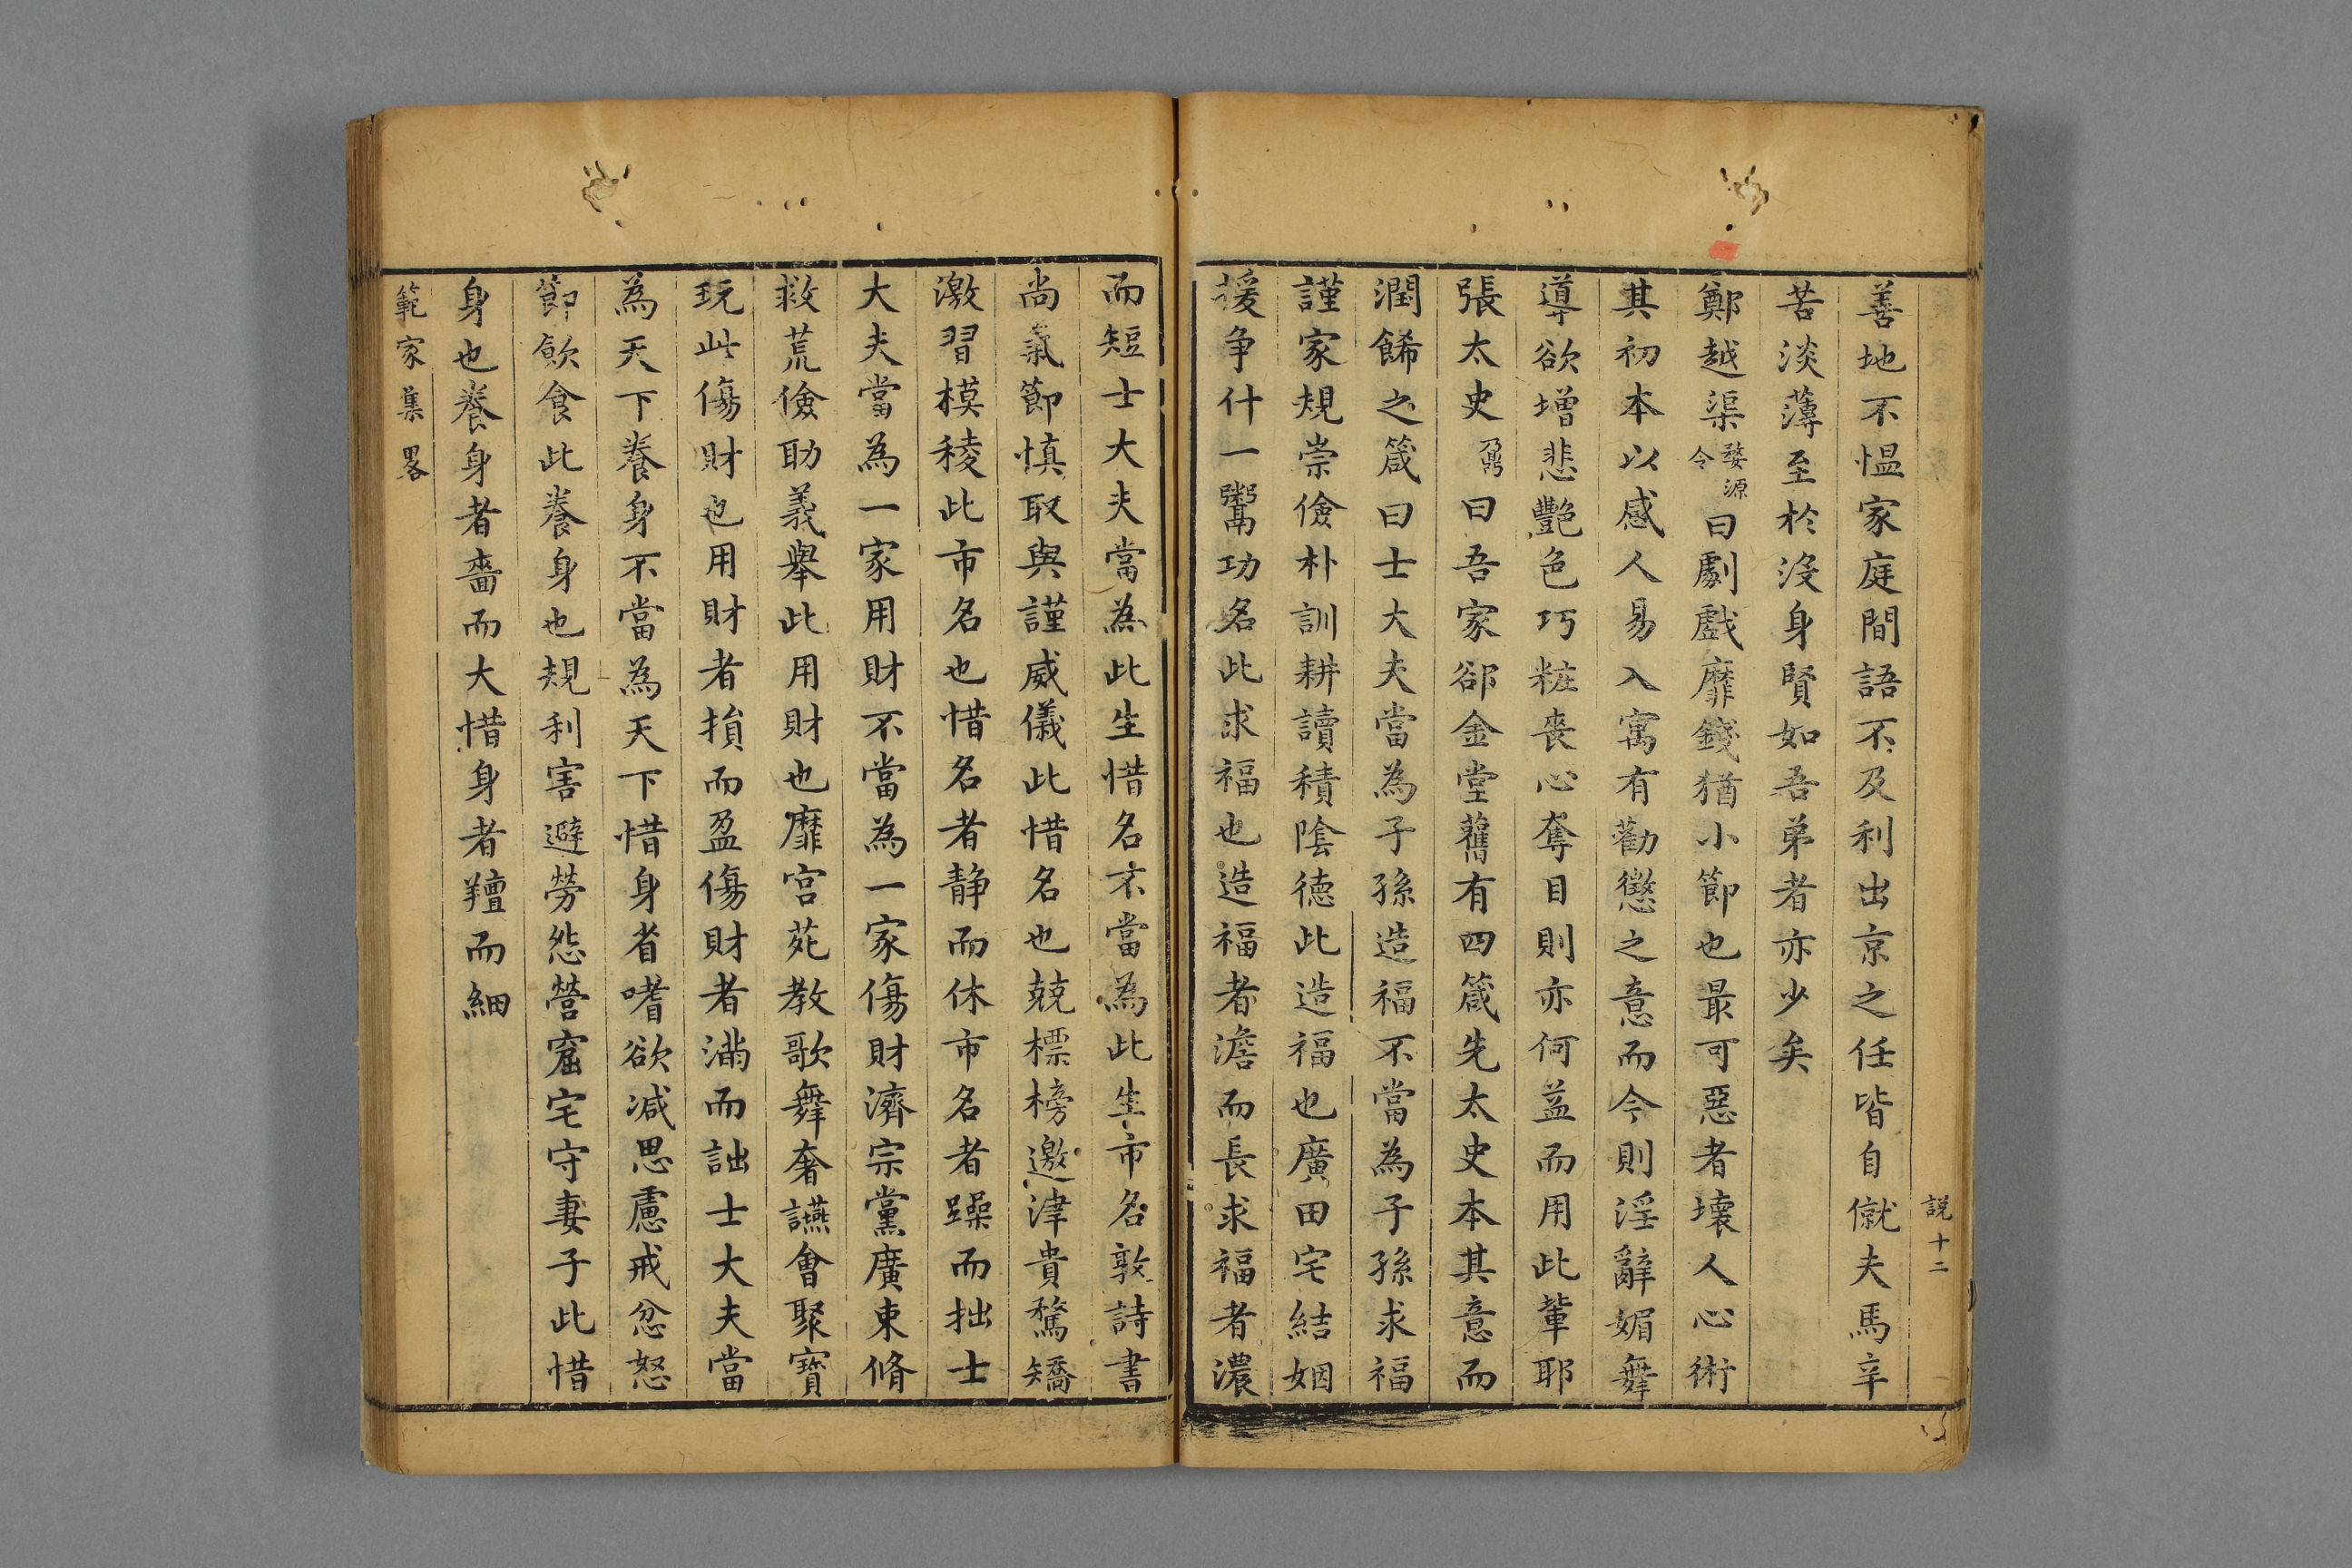 說十二
善地不慍家庭間語不及利出京之任皆自僦夫馬辛
苦淡薄至於沒身賢如吾弟者亦少矣
鄭越渠婺源令曰劇戲靡錢猶小節也最可惡者壞人心術
其初本以感人易入寓有勸懲之意而今則淫辭媚舞
導欲增悲艷色巧粧喪心奪目則亦何益而用此輩耶
張太史鼐曰吾家郤金堂舊有四箴先太史本其意而
潤餙之箴曰士大夫當為子孫造福不當為子孫求福
謹家規崇儉朴訓耕讀積陰德此造福也廣田宅結姻
援争什一鬻功名此求福也造福者澹而長求福者濃
而短士大夫當為此生惜名不當為此生市名敦詩書
尚氣節慎取與謹威儀此惜名也兢標榜邀津貴騖矯
激習模稜此市名也惜名者静而休市名者躁而拙士
大夫當為一家用財不當為一家傷財濟宗黨廣束脩
救荒儉助義舉此用財也靡宫苑教歌舞奢讌會聚寶
玩此傷財也用財者損而盈傷財者滿而詘士大夫當
為天下養身不當為天下惜身省嗜欲減思慮戒忿怒
節飲食此養身也規利害避勞怨營窟宅守妻子此惜
身也養身者嗇而大惜身者羶而細
範家集畧